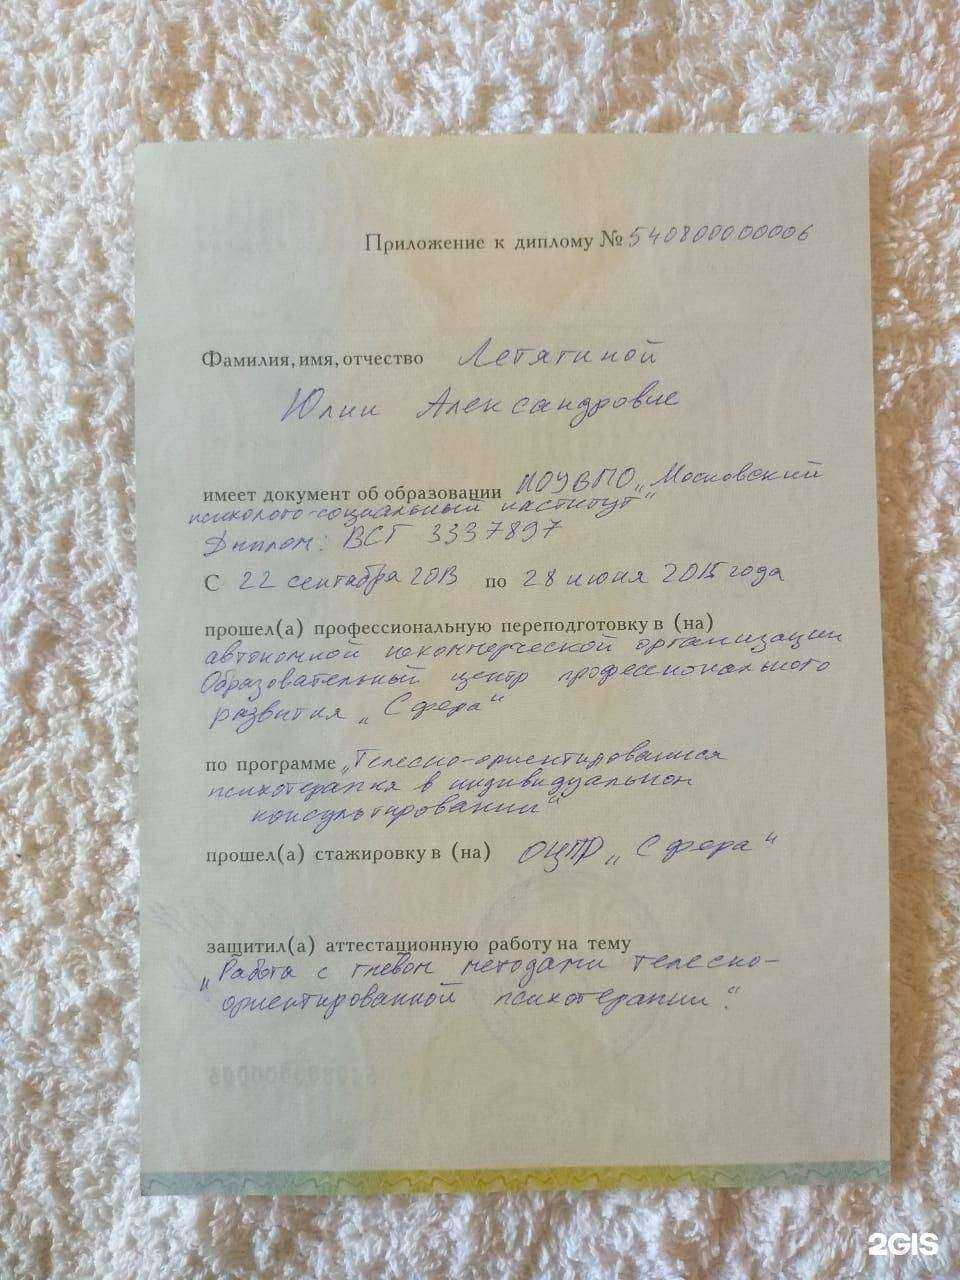 Приложение к диплому № 540800000006
Фамилия, имя, отчество Летягиной
Юлии Александровне
имеет документ об образовании НОУВПО „Московский
психолого-социальный институт"
Диплом: ВСГ 3337897
С 22 сентября 2013 по 28 июня 2015 года
прошел(а) профессиональную переподготовку в (на)
автономной некоммерческой организации
Образовательный центр профессионального
развития „Сфера"
по программе „Телесно-ориентированная
психотерапия в индивидуальном
консультировании"
прошел(а) стажировку в (на) ОЦПР „Сфера"
защитил(а) аттестационную работу на тему
„Работа с гневом методами телесно-
ориентированной психотерапии".
2GIS